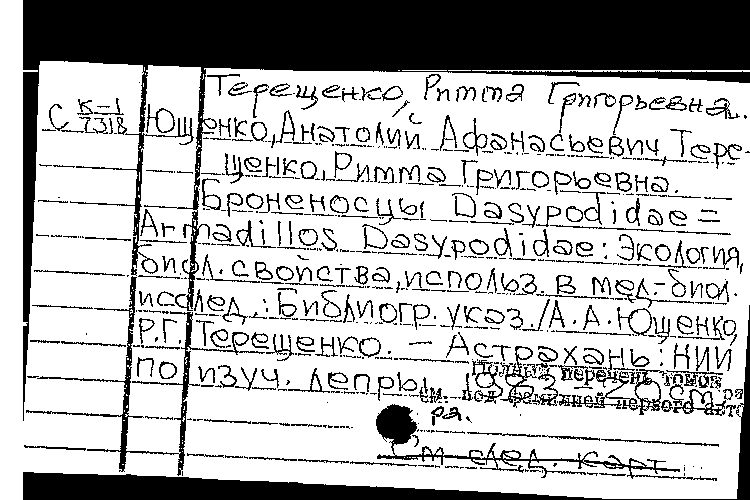 Терещенко, Римма Григорьевна.
С К-1/7318 Ющенко, Анатолий Афанасьевич, Тере-
щенко, Римма Григорьевна.
Броненосцы Dasypodidae =
Armadillos Dasypodidae: Экология,
биол. свойства, использ. в мед.-биол.
исслед.: Библиогр. указ. / А. А. Ющенко,
Р.Г. Терещенко. — Астрахань: НИИ
Полный перечень томов
по изуч. лепры, 20 см.
см. под фамилией первого авто
ра.
См след. карт.